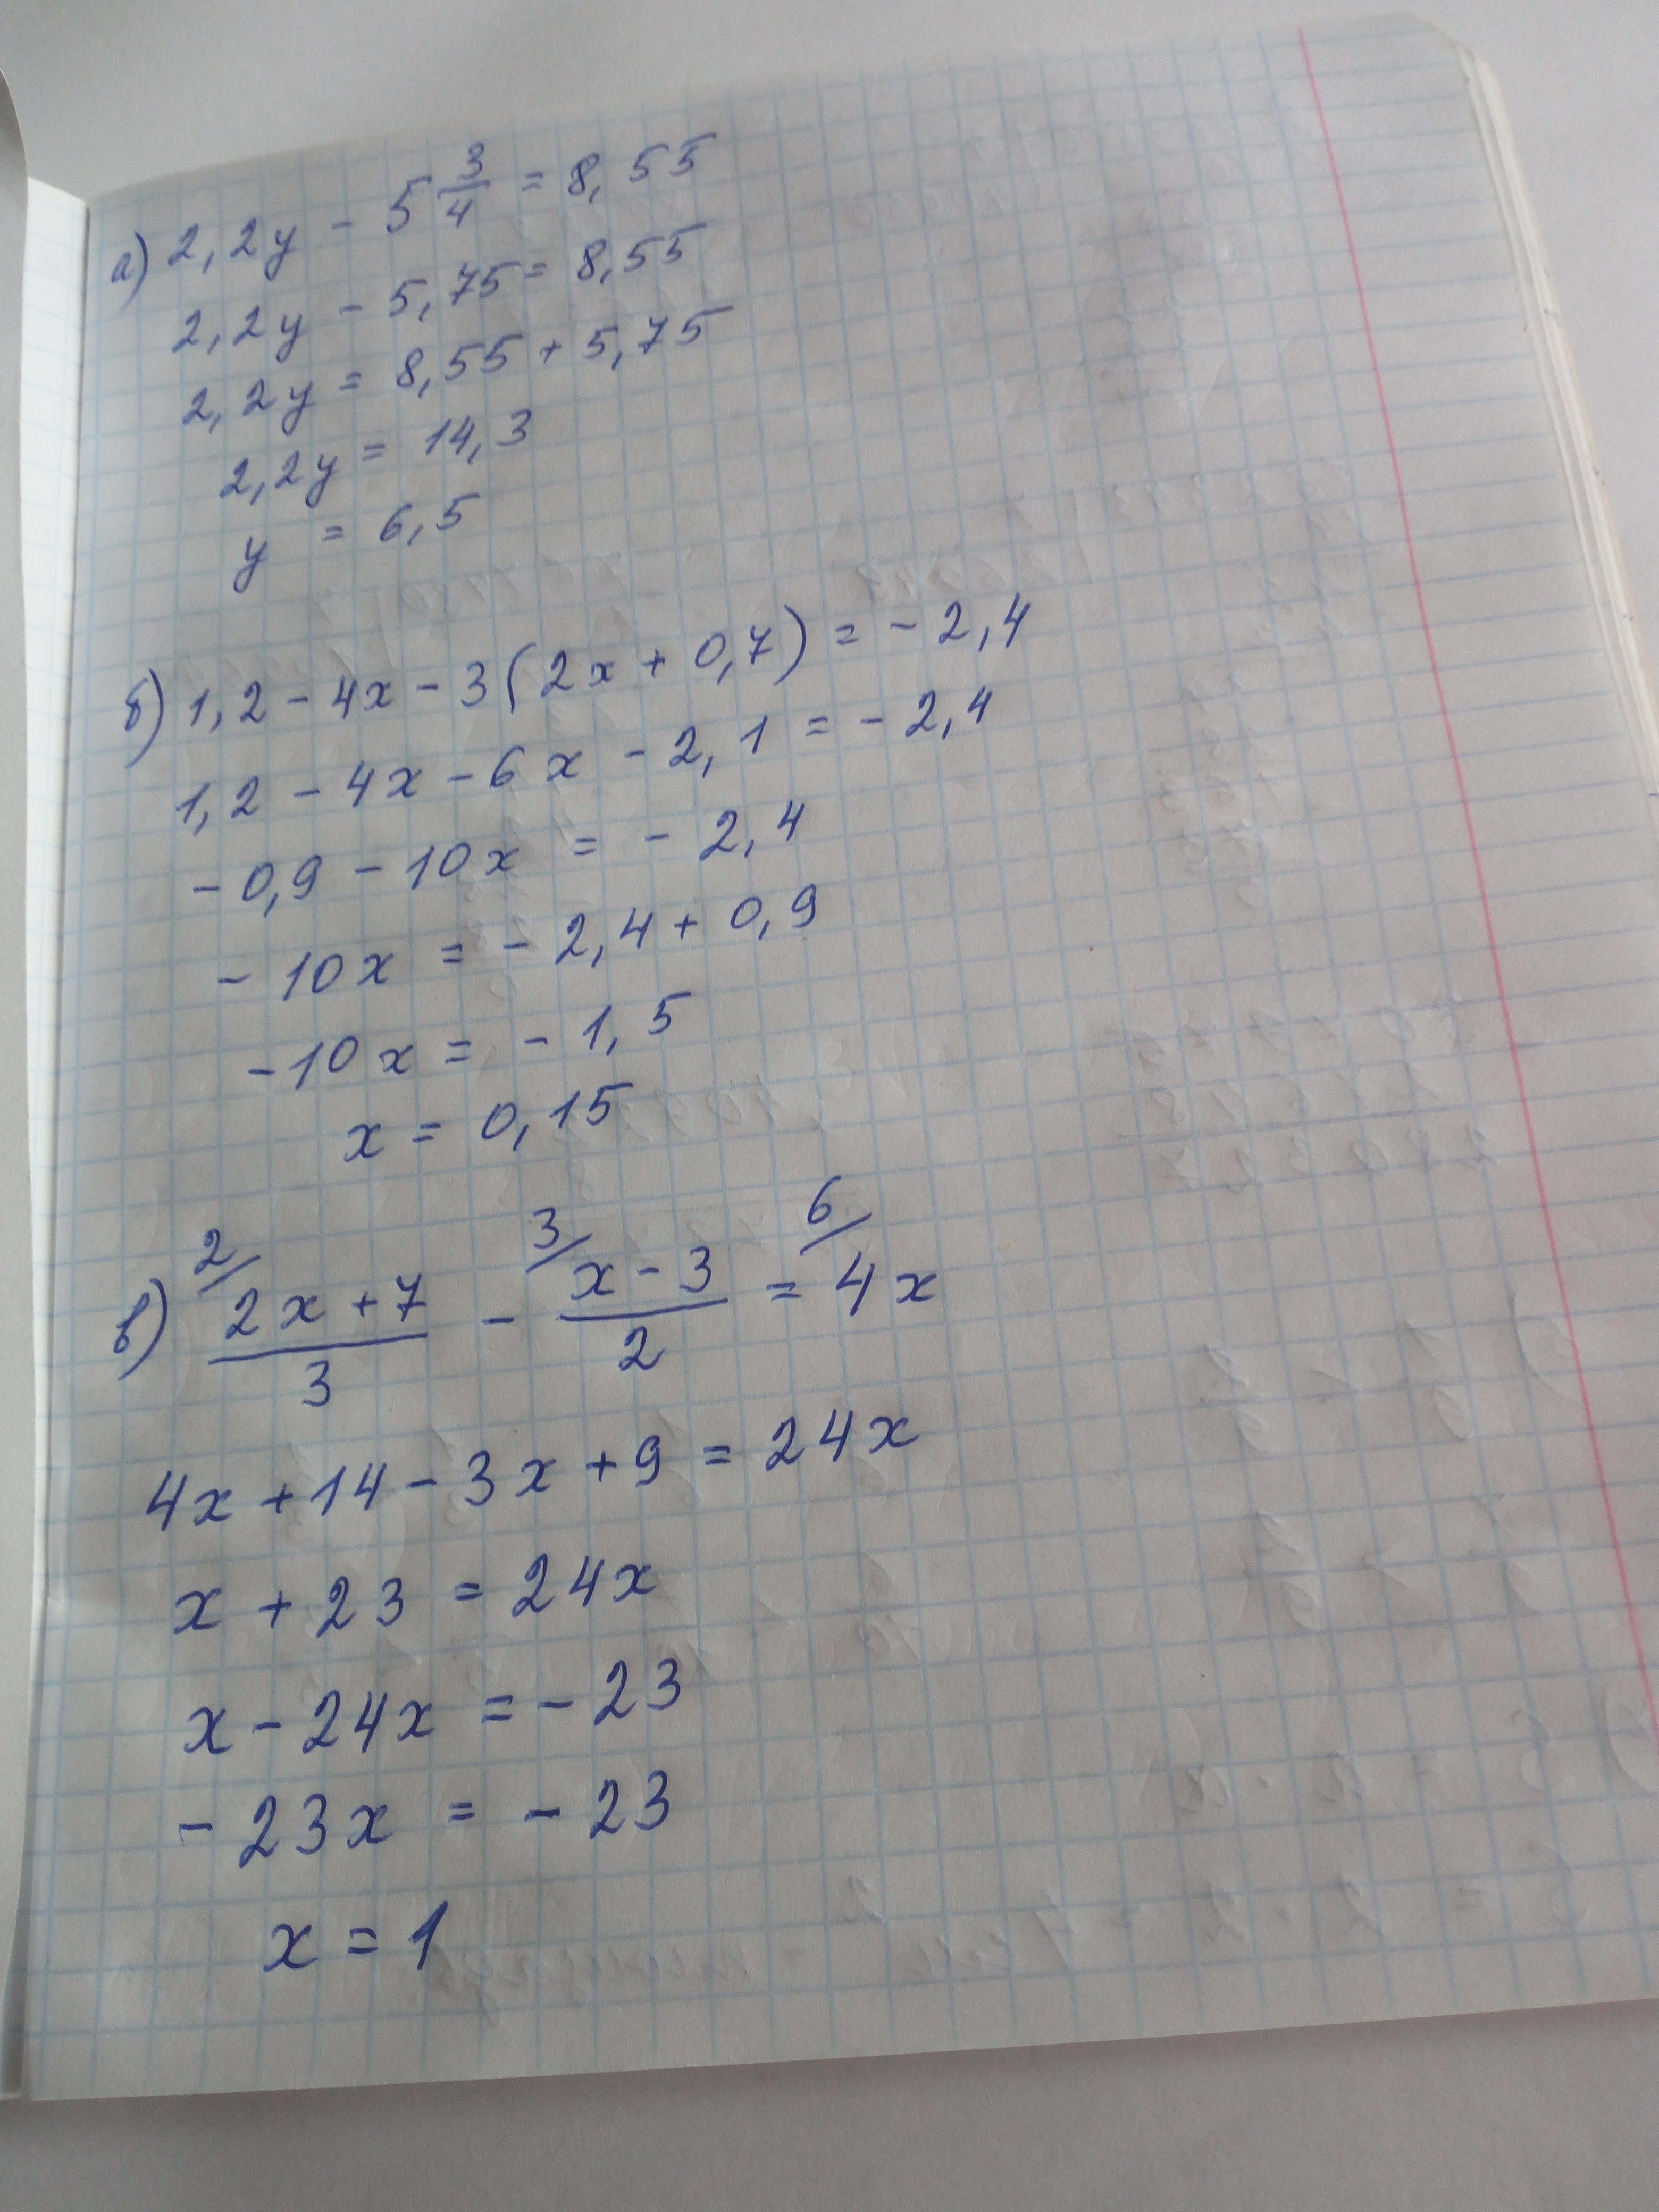 а) 2,2y - 5 3/4 = 8,55
2,2y - 5,75 = 8,55
2,2y = 8,55 + 5,75
2,2y = 14,3
y = 6,5
б) 1,2 - 4x - 3(2x + 0,7) = - 2,4
1,2 - 4x - 6x - 2,1 = - 2,4
- 0,9 - 10x = - 2,4
- 10x = - 2,4 + 0,9
- 10x = - 1,5
x = 0,15
в) 2/ (2x + 7)/3 - 3/ (x - 3)/2 = 6/ 4x
4x + 14 - 3x + 9 = 24x
x + 23 = 24x
x - 24x = - 23
- 23x = - 23
x = 1